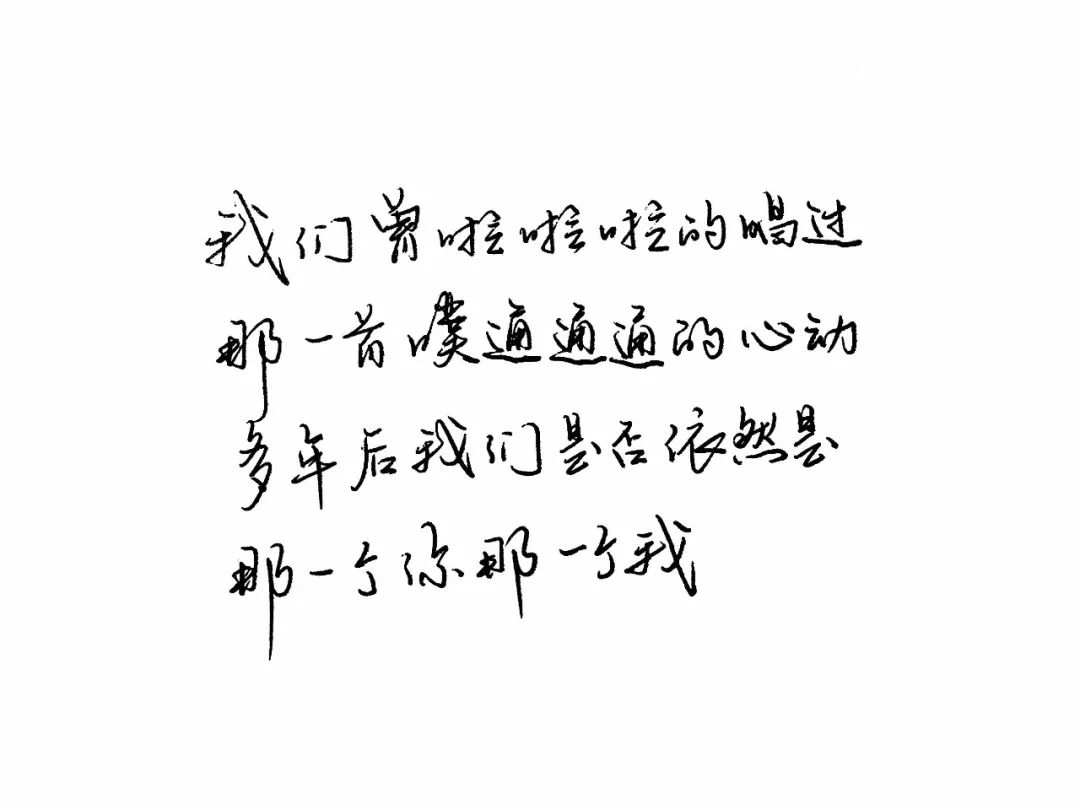 我们曾啦啦啦的唱过
那一首噗通通通的心动
多年后我们是否依然是
那一个你那一个我